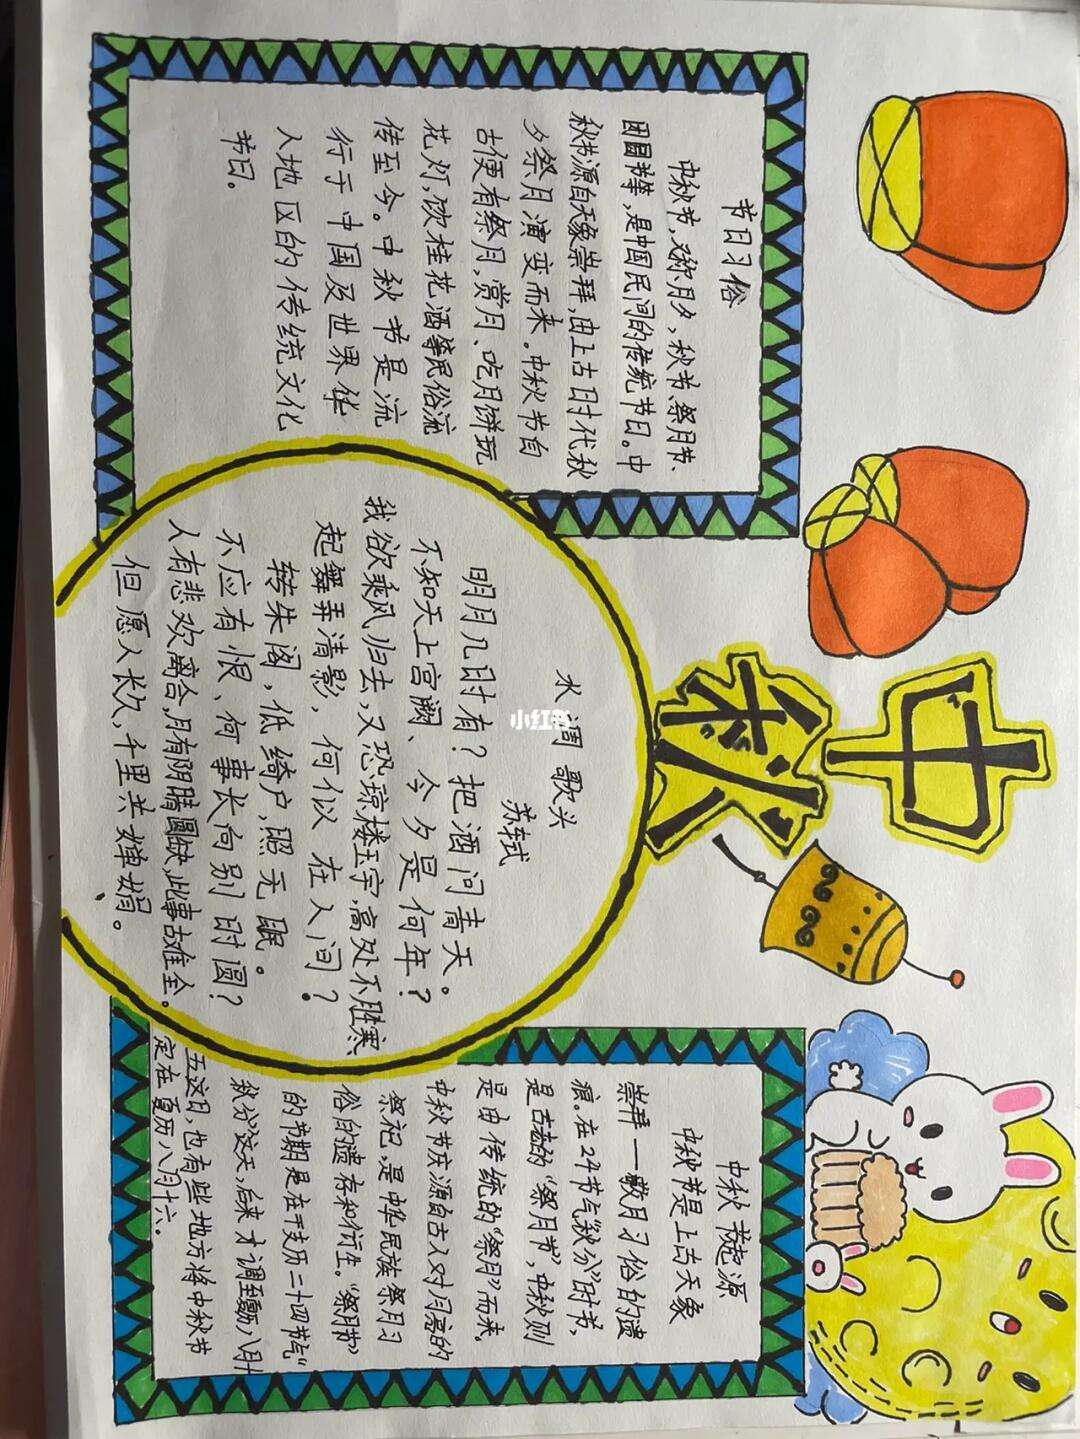 中秋
节日习俗
中秋节,又称月夕,秋节、祭月节、
团圆节等,是中国民间的传统节日。中
秋节源自天象崇拜,由上古时代秋
夕祭月演变而来。中秋节自
古便有祭月,赏月、吃月饼玩
花灯,饮桂花酒等民俗流
传至今。中秋节是流
行于中国及世界华
人地区的传统文化
节日。
水调歌头
苏轼
明月几时有?把酒问青天。
不知天上宫阙、今夕是何年?
我欲乘风归去,又恐琼楼玉宇,高处不胜寒、
起舞弄清影,何似在人间?
转朱阁,低绮户,照无眠。
不应有恨、何事长向别时圆?
人有悲欢离合,月有阴晴圆缺,此事古难全。
但愿人长久,千里共婵娟。
中秋节起源
中秋节是上古天象
崇拜——敬月习俗的遗
痕。在24节气“秋分”时节,
是古老的“祭月节”,中秋则
是由传统的“祭月”而来。
中秋节庆源自古人对月亮的
祭祀,是中华民族祭月习
俗的遗存和衍生。“祭月节”
的节期是在干支历二十四节气“
秋分”这天,后来才调至夏历八月十
五这日,也有些地方将中秋节
定在夏历八月十六。
小红书